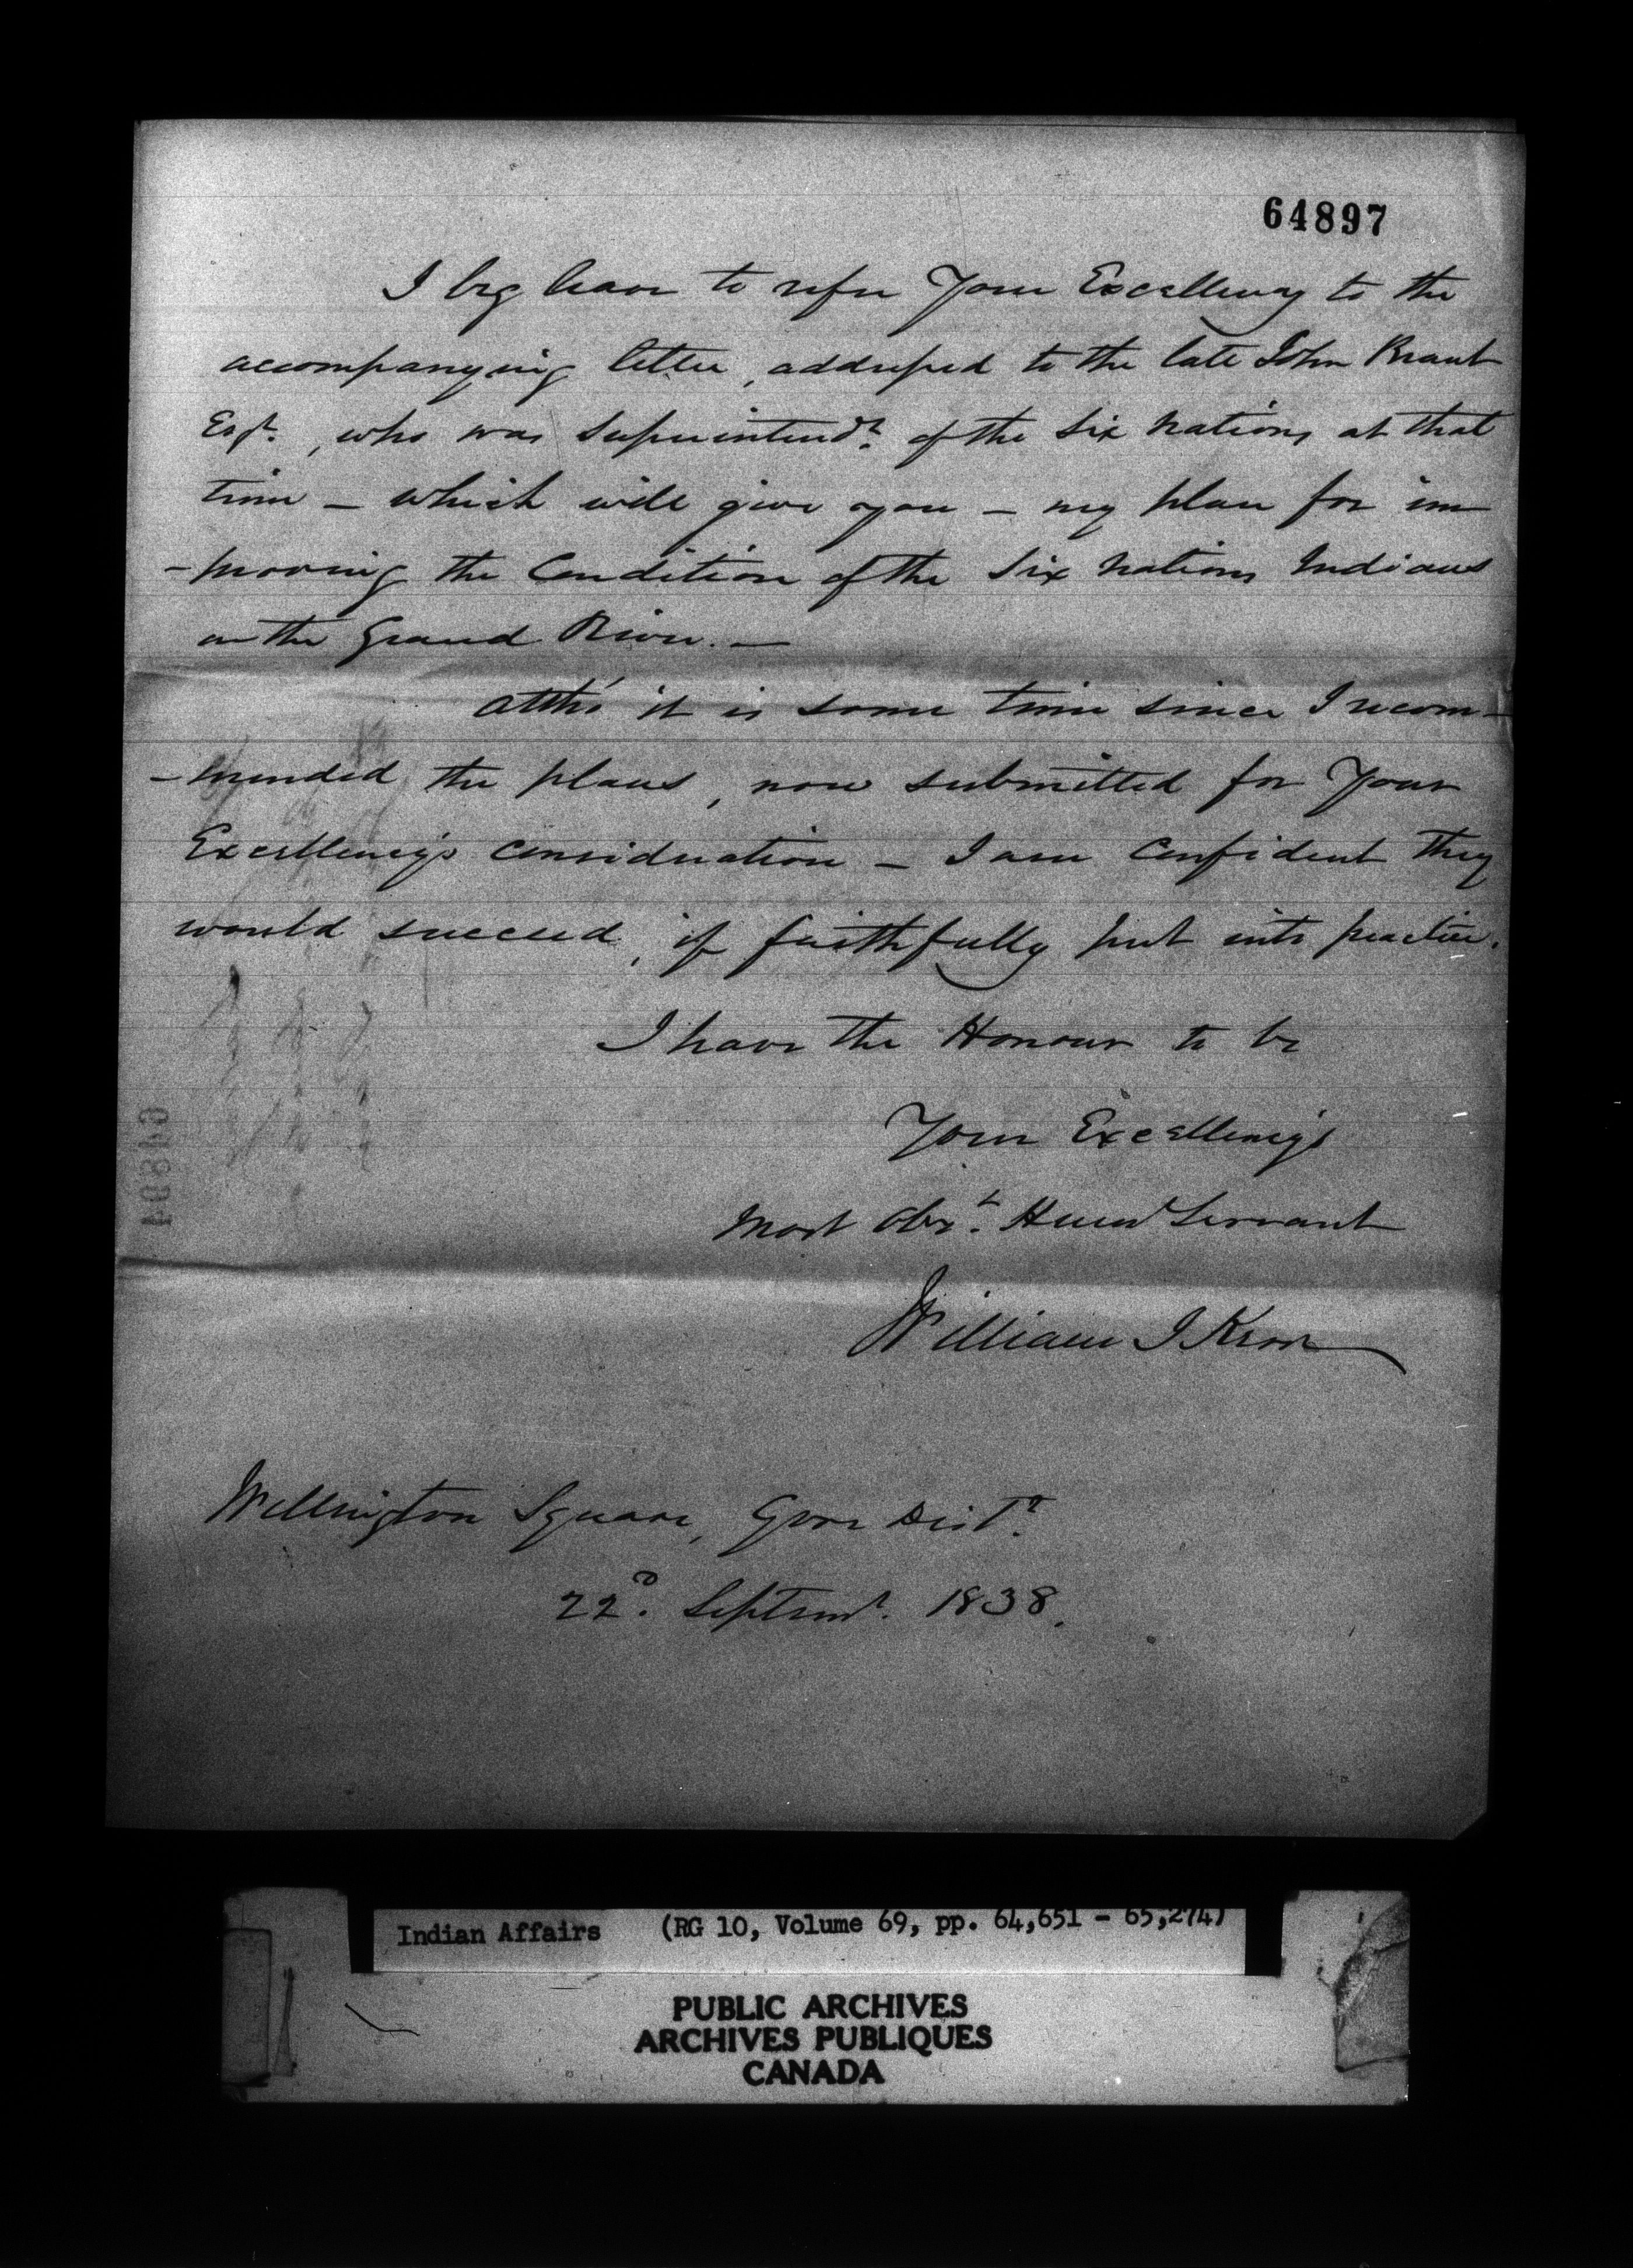 64897
I beg leave to refer Your Excellency to the
accompanying letter, addressed to the late John Brant
Esqr., who was Superintendt. of the Six Nations at that
time – which will give you – my plan for im
-proving the Condition of the Six Nations Indians
on the Grand River. –
Altho' it is some time since I recom-
-mended the plans, now submitted for Your
Excellency's consideration – I am Confident they
would succeed, if faithfully put into practice.
I have the Honour to be
Your Excellency's
Most Obt. Hum Servant
William J Kerr
Wellington Square, Gore Distt.
22d. Septemr. 1838.
64894
Indian Affairs (RG 10, Volume 69, pp. 64,651 - 65,274)
PUBLIC ARCHIVES
ARCHIVES PUBLIQUES
CANADA